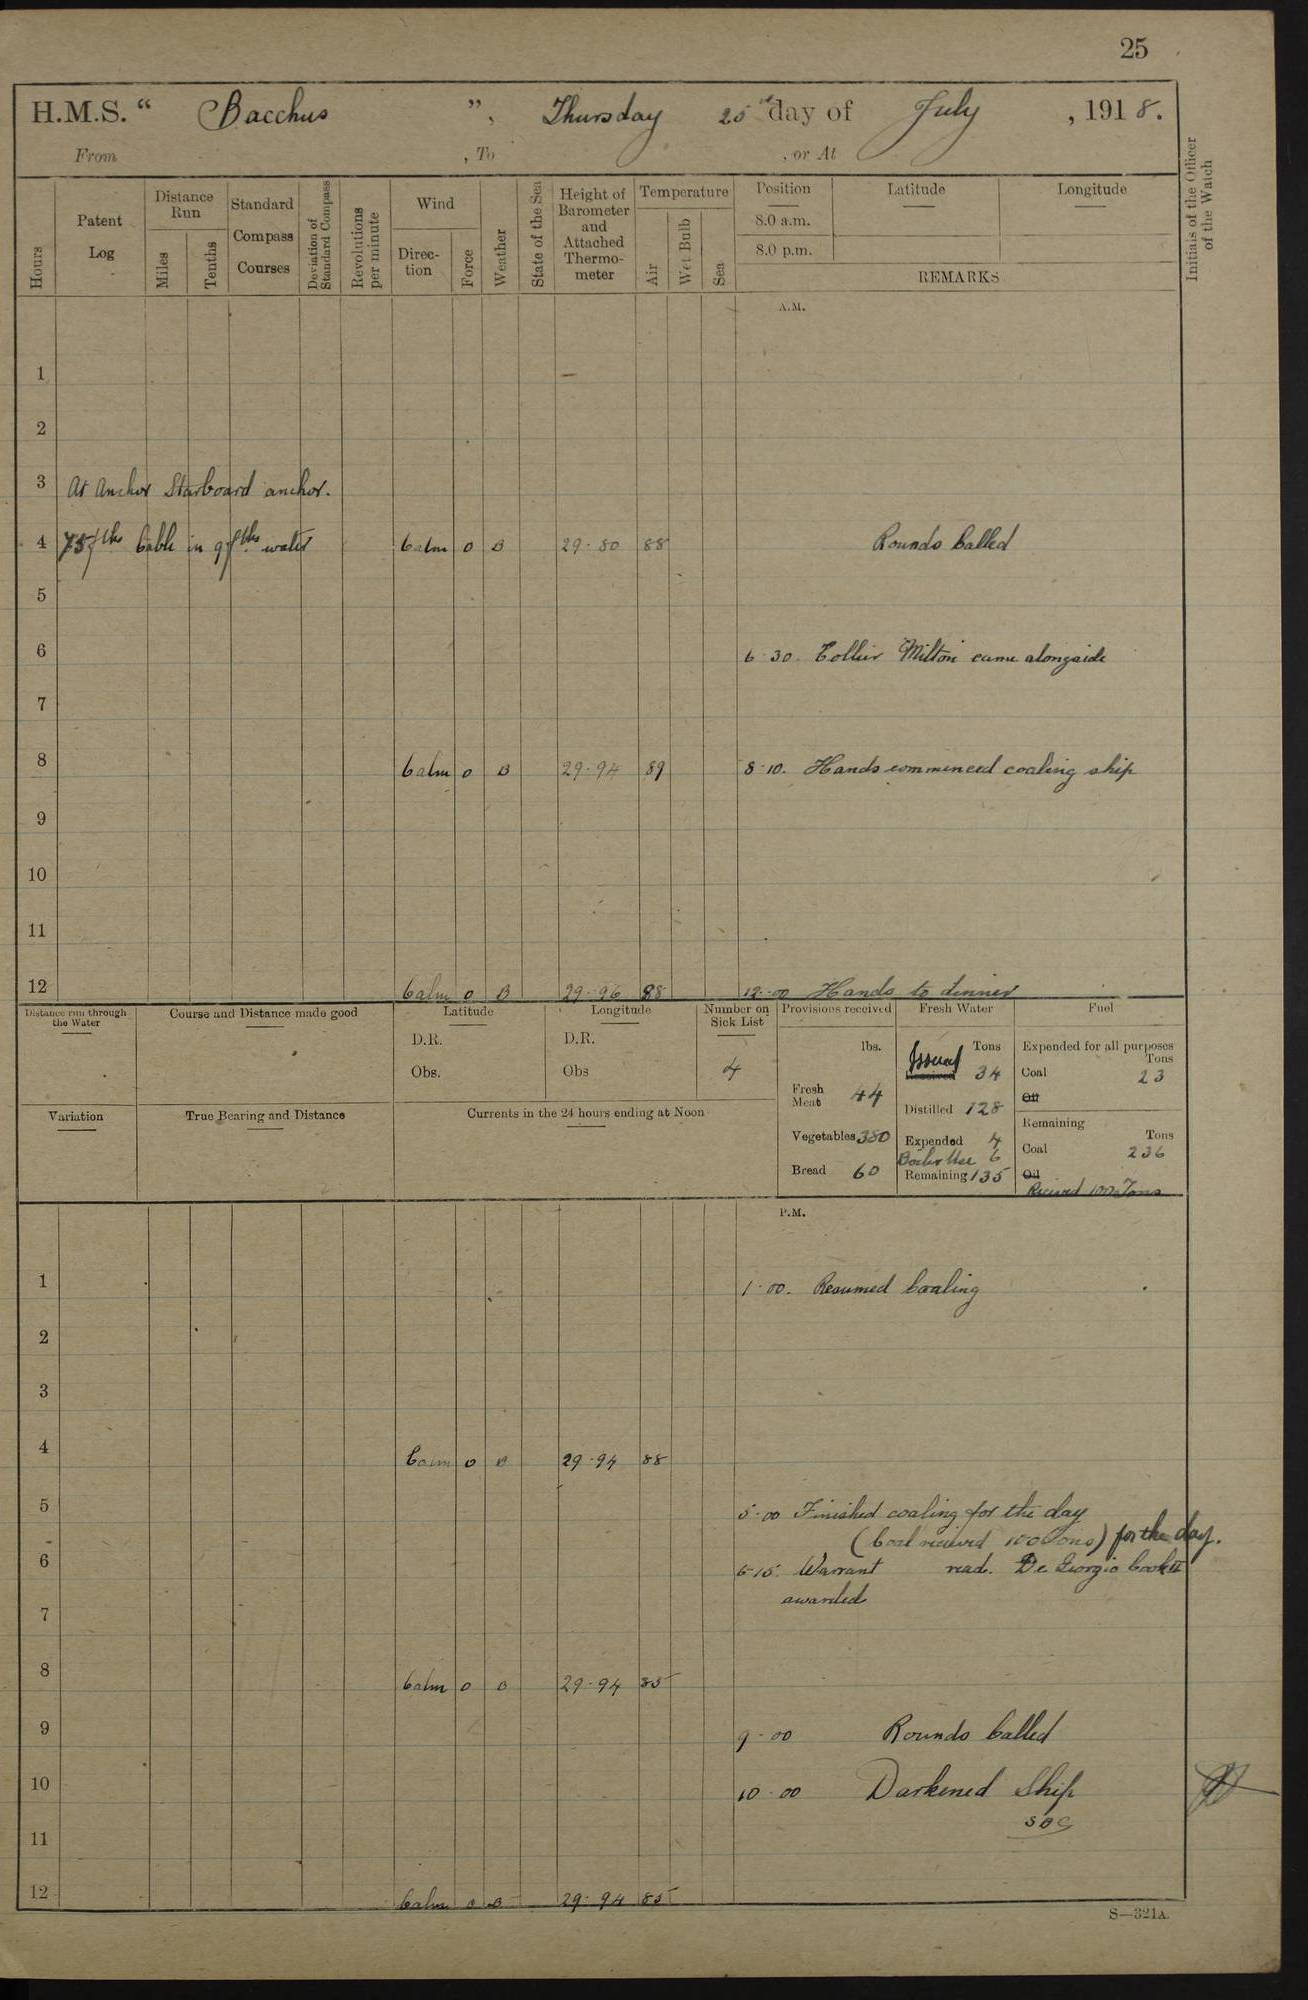 25
H.M.S. “ Bacchus ”, Thursday 25th day of July, 1918.
From , To , or At
Hours
Patent Log
Distance Run
Miles
Tenths
Standard Compass Courses
Deviation of Standard Compass
Revolutions per minute
Wind
Direc-tion
Force
Weather
State of the Sea
Height of Barometer and Attached Thermo-meter
Temperature
Air
Wet Bulb
Sea
Position
8.0 a.m.
8.0 p.m.
Latitude
Longitude
REMARKS
Initials of the Officer of the Watch
A.M.
1
2
3 At Anchor Starboard anchor.
4 75 fths Cable in 9 fths water Calm 0 B 29-80 88 Rounds Called
5
6
6-30. Collier Milton came alongside
7
8 Calm 0 B 29-94 89 8-10. Hands commenced coaling ship
9
10
11
12 Calm 0 B 29-96 88 12-00 Hands to dinner
Distance run through the Water
Course and Distance made good
Latitude
D.R.
Obs.
Longitude
D.R.
Obs
Number on Sick List
4
Provisions received
lbs.
Fresh Meat 44
Vegetables 380
Bread 60
Fresh Water
Tons
Issued 34
Distilled 128
Expended 4
Boiler Use 6
Remaining 135
Fuel
Expended for all purposes
Tons
Coal 23
Oil
Remaining
Tons
Coal 236
Oil
Received 100 Tons
Variation
True Bearing and Distance
Currents in the 24 hours ending at Noon
P.M.
1 1-00. Resumed Coaling
2
3
4 Calm 0 B 29-94 88
5 5-00 Finished coaling for the day
(Coal received 100 Tons) for the day.
6 6-15. Warrant read. De Giorgio Cook
awarded
7
8 Calm 0 B 29-94 85
9 9-00 Rounds Called
10 10-00 Darkened Ship
11
12 Calm 0 B 29-94 85
S—321A.